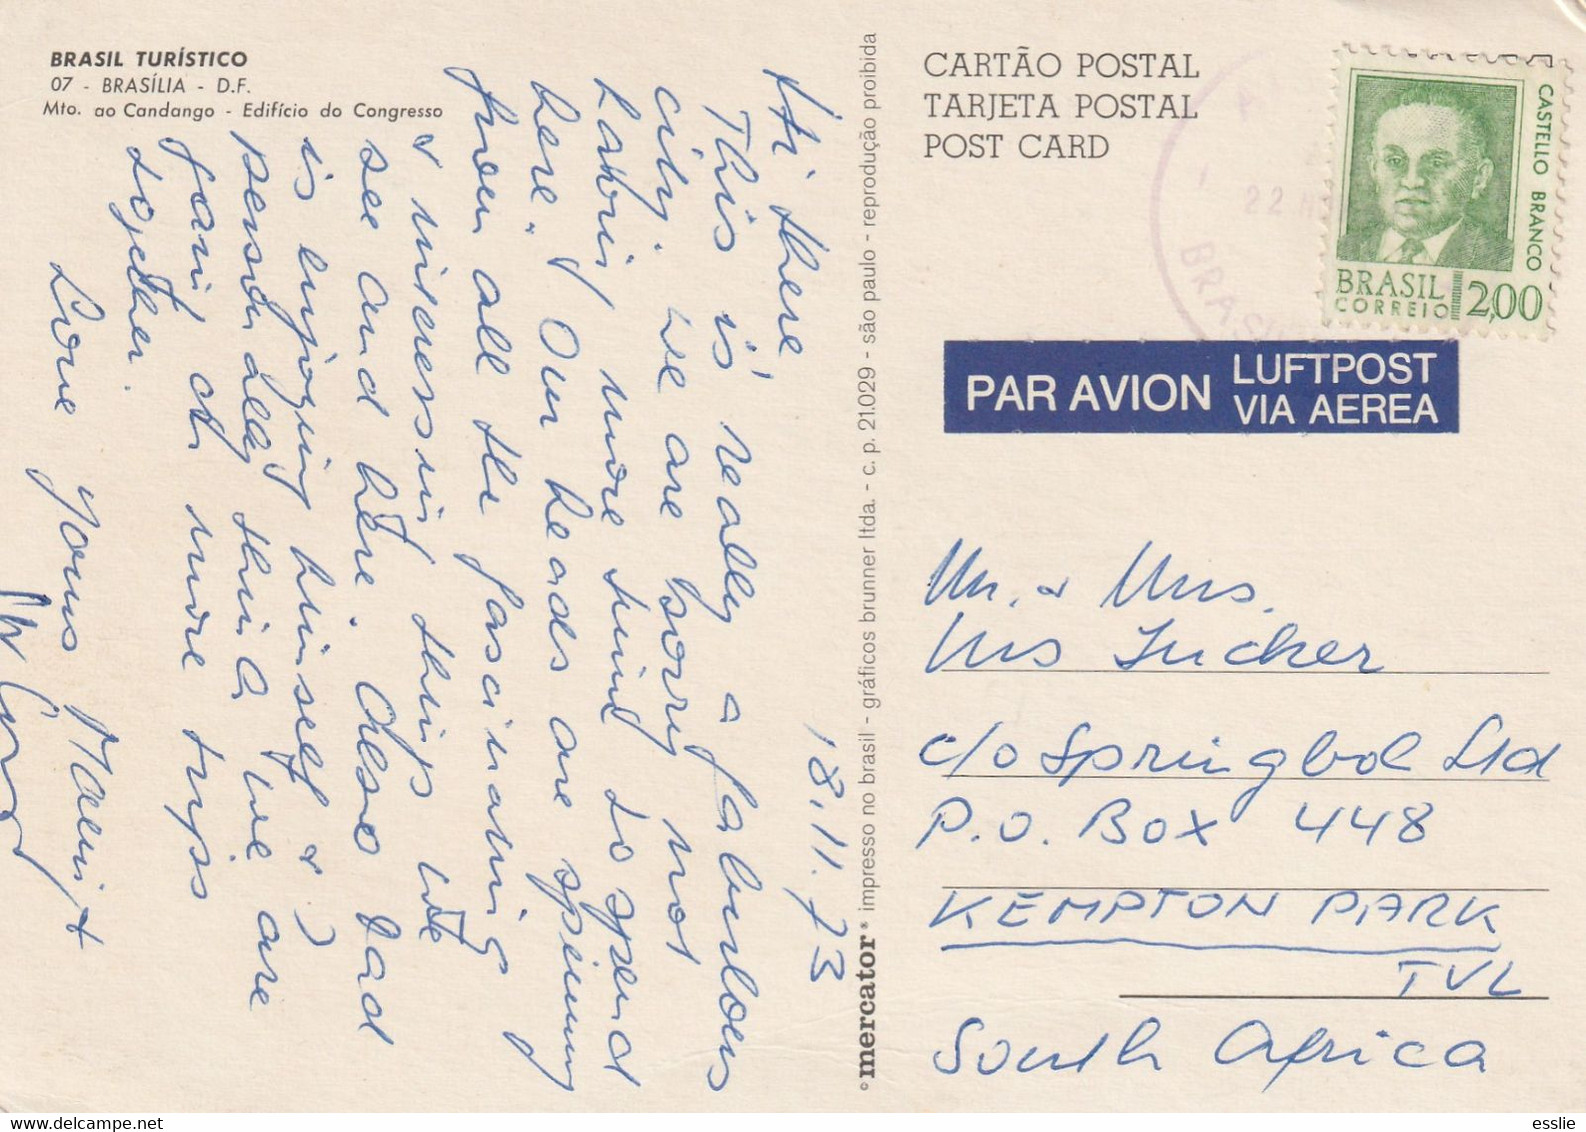 BRASIL TURÍSTICO
07 - BRASÍLIA - D.F.
Mto. ao Candango - Edifício do Congresso
18.11.73
Hi there,
This is really a fabulous
city. We are sorry not
having more time to spend
here. Our heads are spinning
from all the fascinating
& interessing things we
see and here. Also Dad
is enjoying himself & )
personally think we are
going on more trips
together.
Love yours
mercator® impresso no brasil - gráficos brunner ltda. - c. p. 21.029 - são paulo - reprodução proibida
CARTÃO POSTAL
TARJETA POSTAL
POST CARD
22
BRAS
CASTELLO BRANCO
BRASIL
CORREIO
2,00
PAR AVION
LUFTPOST
VIA AEREA
Mr. & Mrs.
c/o Springbok Ltd
P.O. Box 448
KEMPTON PARK
TVL
South Africa
esslie